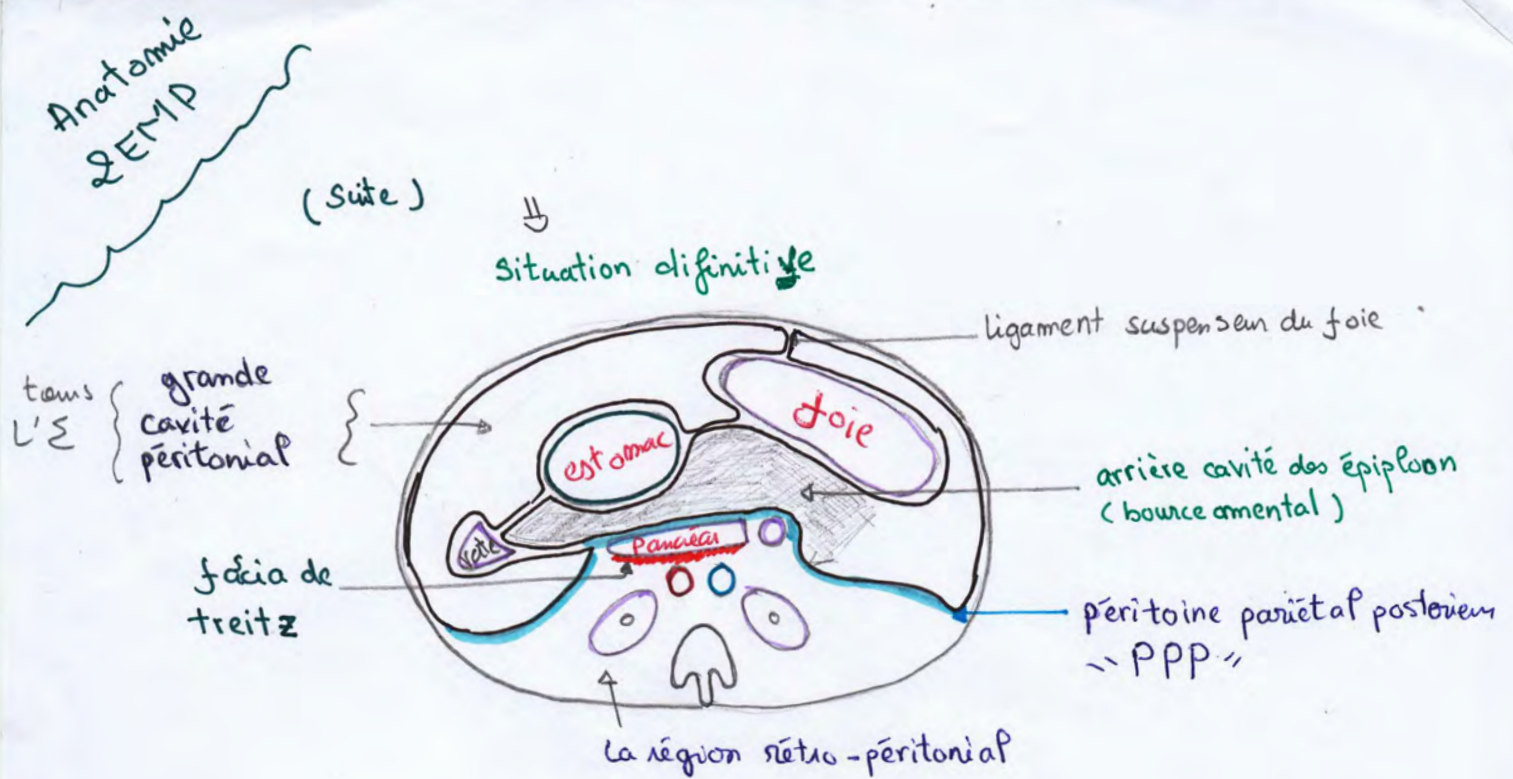 Anatomie
2EMP
(Suite)
Situation difinitive
ligament suspenseur du foie
grande
cavité
péritonial
L'Σ
foie
estomac
arrière cavité des épiploon
(bource omental)
rate
Pancréas
fácia de
treitz
péritoine pariétal posterieur
"PPP"
La région rétro-péritonial